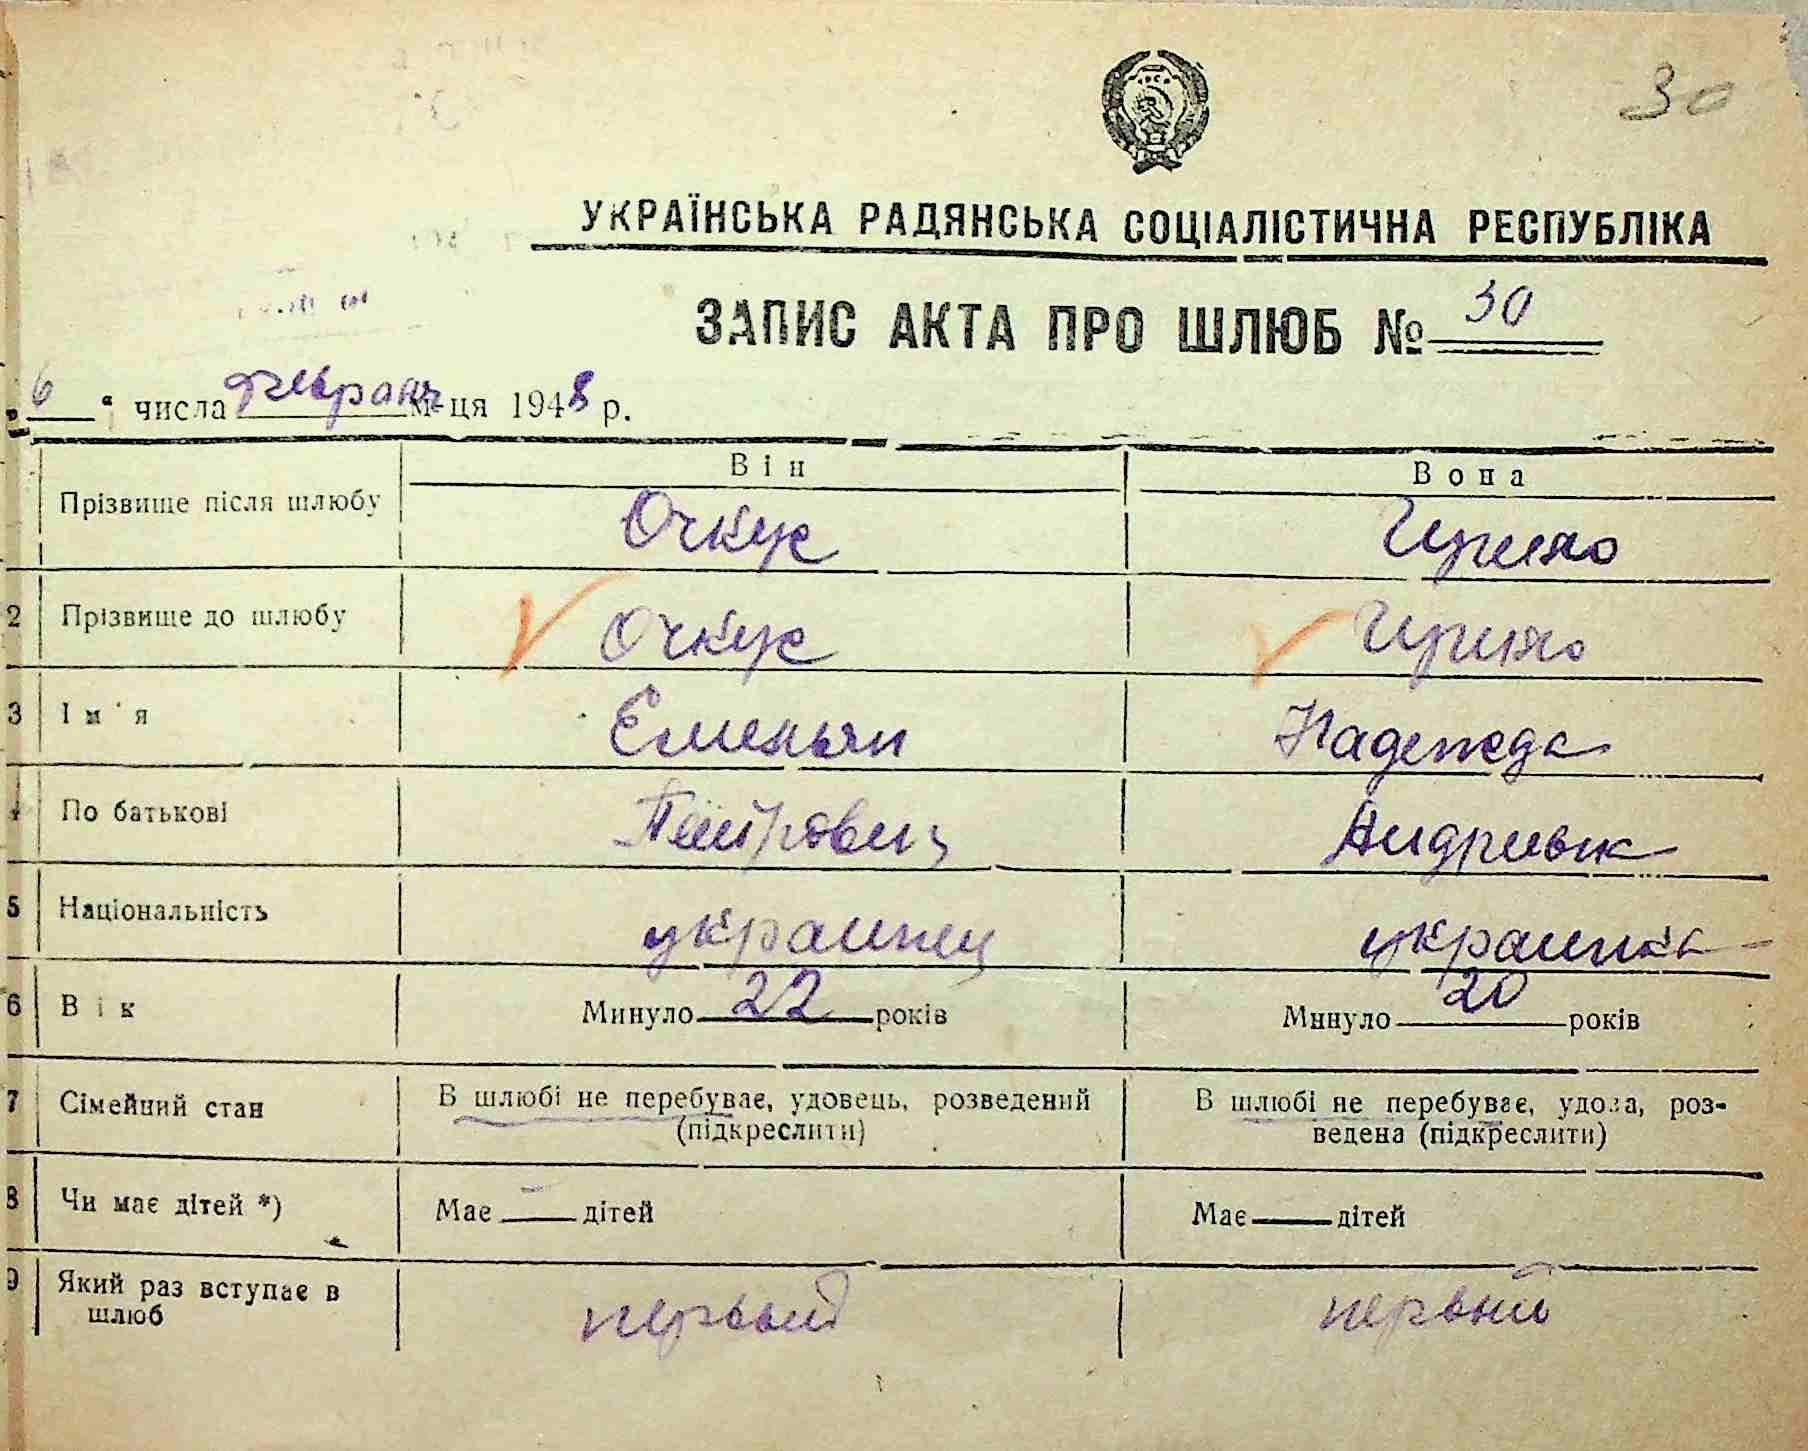 30
УКРАЇНСЬКА РАДЯНСЬКА СОЦІАЛІСТИЧНА РЕСПУБЛІКА
ЗАПИС АКТА ПРО ШЛЮБ № 30
„6“ числа февраля м-ця 1948 р.
Він Вона
Прізвище після шлюбу Очкус
2 Прізвище до шлюбу Очкус
3 Ім'я Емельян Надежда
4 По батькові Петрович Андриевн
5 Національність украинец украинка
6 Вік Минуло 22 років Минуло 20 років
7 Сімейний стан В шлюбі не перебуває, удовець, розведений (підкреслити) В шлюбі не перебуває, удова, роз-
ведена (підкреслити)
8 Чи має дітей *) Має — дітей Має дітей
9 Який раз вступає в шлюб первый первый